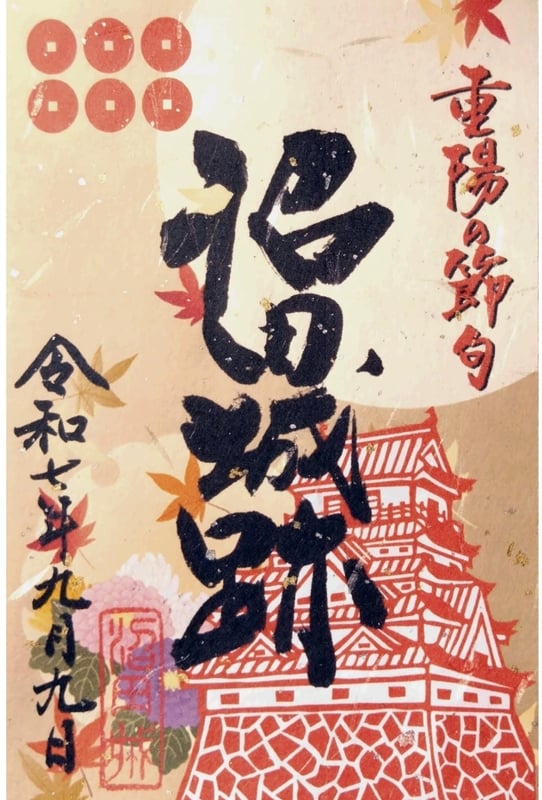 重陽の節句
沼田城跡
令和七年九月九日